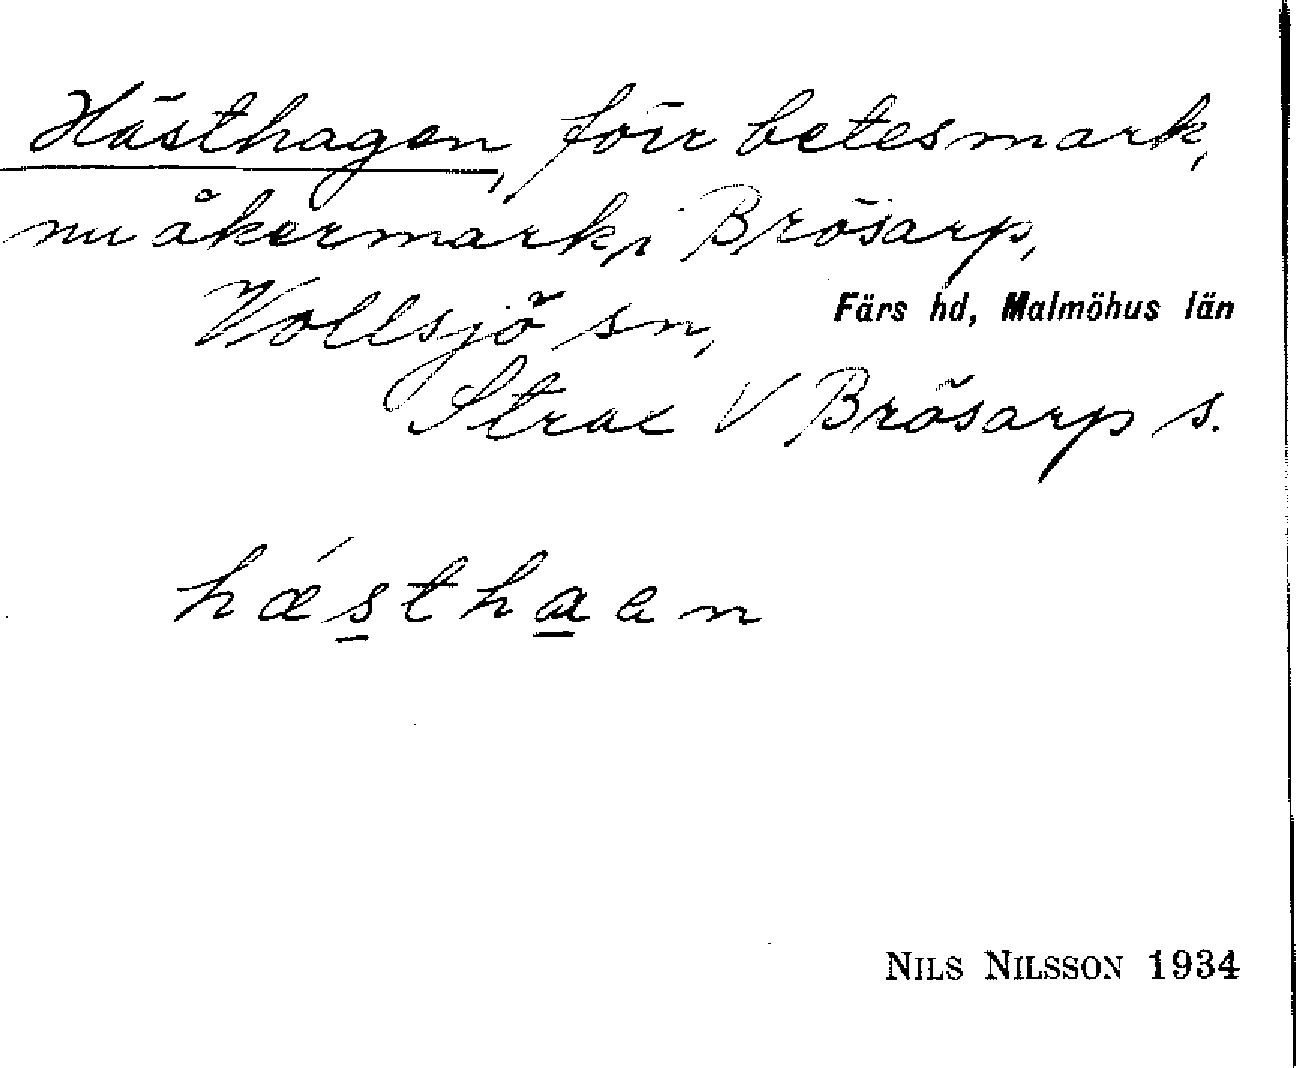 Hästhagen, förr betesmark,
nu åkermark, i Brösarp,
Vollsjö sn, Färs hd, Malmöhus län
Strax V Brösarp s.
hǽsthaen
NILS NILSSON 1934